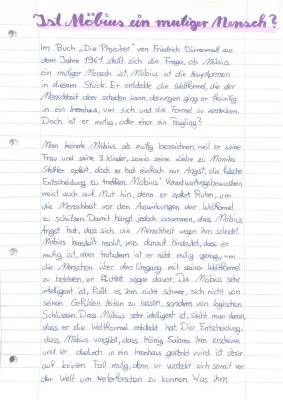 Ist Möbius ein mutiger Mensch?
Im Buch „Die Physiker" von Friedrich Dürrenmatt aus
dem Jahre 1961 stellt sich die Frage, ob Möbius
ein mutiger Mensch ist. Möbius ist die Hauptperson
in diesem Stück. Er entdeckte die Weltformel, die der
Menschheit aber schaden kann, deswegen ging er freiwillig
in ein Irrenhaus, um sich und die Formel zu verstecken.
Doch ist er mutig, oder eher ein Feigling?
Man könnte Möbius als mutig bezeichnen, weil er seine
Frau und seine 3 Kinder, sowie seine Liebe zu Monika
Stettler opfert, doch er hat einfach nur Angst, die falsche
Entscheidung zu treffen. Möbius' Verantwortungsbewusstsein
weist auch auf Mut hin, denn er opfert Ruhm, um
die Menschheit vor den Auswirkungen der Weltformel
zu schützen. Damit hängt jedoch zusammen, dass Möbius
Angst hat, dass sich die Menschheit wegen ihm schadet.
Möbius handelt resolut, was darauf hindeutet, dass er
mutig ist, aber trotzdem ist er nicht mutig genug, um
die Menschen über den Umgang mit seiner Weltformel
zu belehren, er flüchtet sogar davor. Da Möbius sehr
intelligent ist, fällt es ihm nicht schwer, sich nicht von
seinen Gefühlen leiten zu lassen, sondern von logischen
Schlüssen. Dass Möbius sehr intelligent ist, sieht man daran,
dass er die Weltformel entdeckt hat. Die Entscheidung,
dass Möbius vorgibt, dass König Salomo ihm erscheine
und er dadurch in ein Irrenhaus gesteckt wird ist aber
auf keinen Fall mutig, denn er versteckt sich somit vor
der Welt um weiterforschen zu können. Was ihm